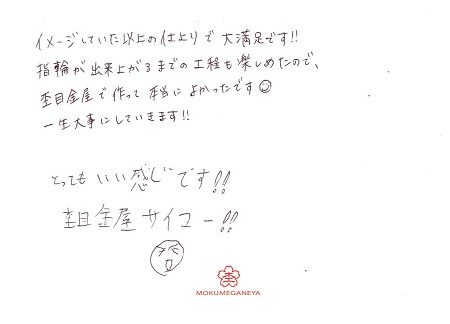 イメージしていた以上の仕上りで大満足です!!
指輪が出来上がるまでの工程も楽しめたので、
杢目金屋で作って本当によかったです☺
一生大事にしていきます!!
とってもいい感じです!!
杢目金屋サイコー!!
MOKUMEGANEYA